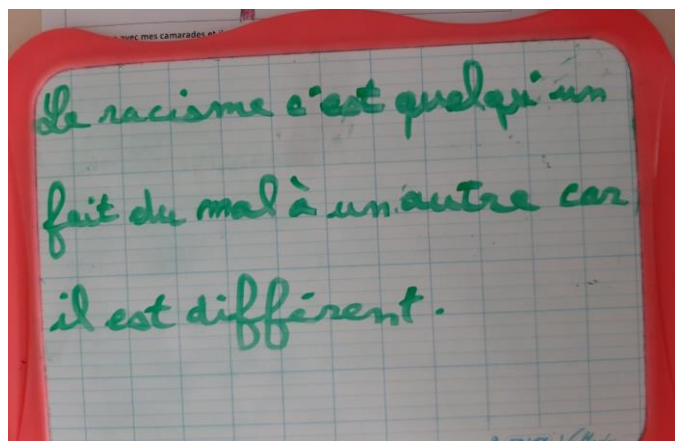 avec mes camarades et
Le racisme c'est quelqu'un
fait du mal à un autre car
il est différent.